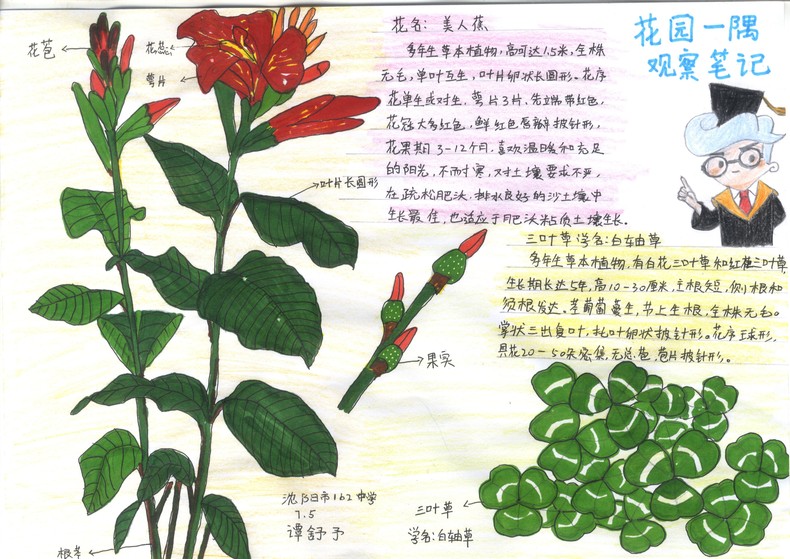 花园一隅
观察笔记
花名：美人蕉
多年生草本植物，高可达1.5米，全株
无毛，单叶互生，叶片卵状长圆形。花序
花单生或对生，萼片3片，先端带红色，
花冠大多红色，鲜红色唇瓣披针形，
花果期3-12个月，喜欢温暖和充足
的阳光，不耐寒，对土壤要求不严，
在疏松肥沃，排水良好的沙土壤中
生长最佳，也适应于肥沃粘质土壤生长。
三叶草 学名：白轴草
多年生草本植物，有白花三叶草和红花三叶草，
生长期长达5年，高10-30厘米，主根短，侧根和
须根发达。茎葡萄蔓生，节上生根，全株无毛。
掌状三出复叶，托叶卵状披针形。花序球形，
具花20-50朵密集，无总苞，苞片披针形。
花苞
花蕊
萼片
叶片长圆形
果实
根茎
三叶草
学名：白轴草
沈阳市162中学
7.5
谭舒予